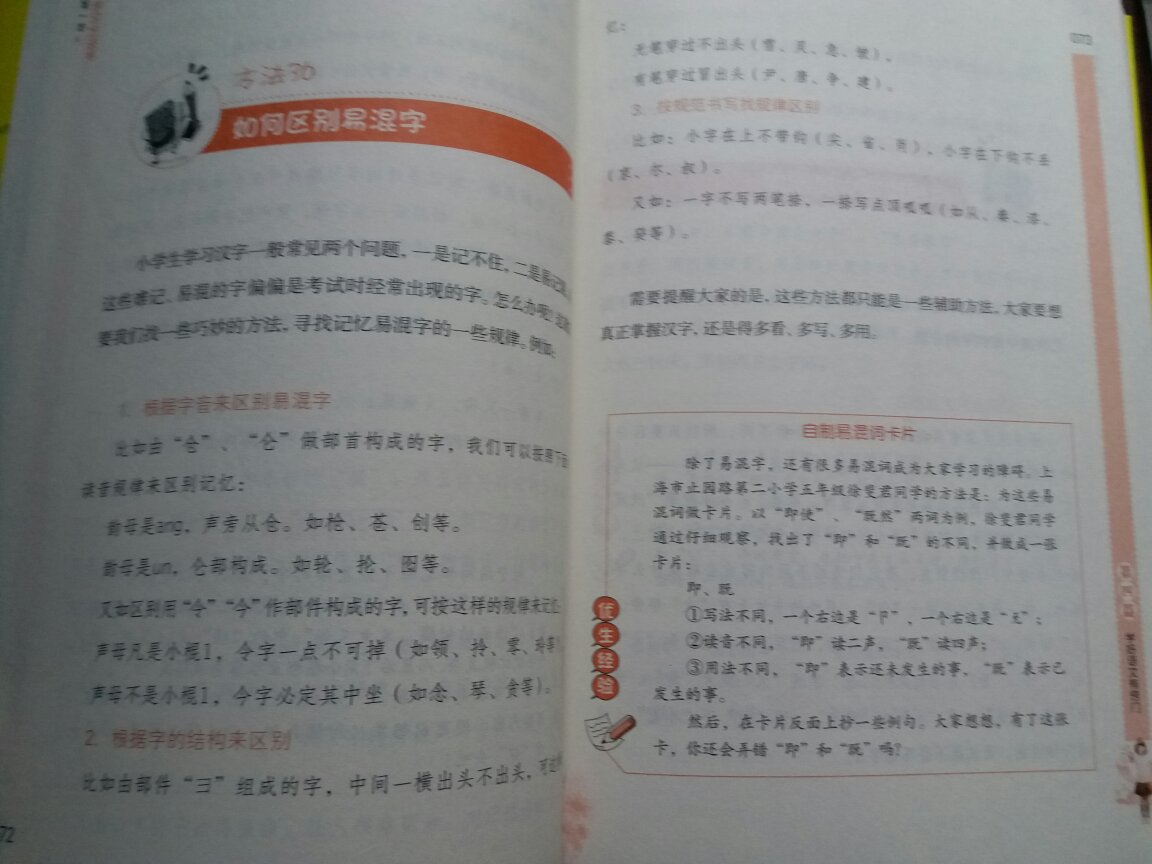 方法30
如何区别易混字
小学生学习汉字一般常见两个问题，一是记不住，二是易记混
这些难记、易混的字偏偏是考试时经常出现的字。怎么办呢？
要我们找一些巧妙的方法，寻找记忆易混字的一些规律。例如：
1. 根据字音来区别易混字
比如由“仓”、“仑”做部首构成的字，我们可以按照下
读音规律来区别记忆：
韵母是ang，声旁从仓。如枪、苍、创等。
韵母是un，仑部构成。如轮、抡、囵等。
又如区别用“令”“今”作部件构成的字，可按这样的规律来记忆
声母凡是小棍l，令字一点不可掉（如领、拎、零、玲等
声母不是小棍l，今字必定其中坐（如念、琴、贪等）。
2. 根据字的结构来区别
比如由部件“彐”组成的字，中间一横出头不出头，可
72
忆：
无笔穿过不出头（雪、灵、急、皱）。
有笔穿过冒出头（尹、唐、争、建）。
3. 按规范书写找规律区别
比如：小字在上不带钩（尖、省、肖），小字在下钩不丢
（京、尔、叔）。
又如：一字不写两笔捺，一捺写点顶呱呱（如从、秦、
黍、癸等）。
需要提醒大家的是，这些方法都只能是一些辅助方法，大家要想
真正掌握汉字，还是得多看、多写、多用。
自制易混词卡片
除了易混字，还有很多易混词成为大家学习的障碍。上
海市止园路第二小学五年级徐斐君同学的方法是：为这些易
混词做卡片。以“即使”、“既然”两词为例，徐斐君同学
通过仔细观察，找出了“即”和“既”的不同，并做成一张
卡片：
即、既
①写法不同，一个右边是“卩”，一个右边是“旡”；
②读音不同，“即”读二声，“既”读四声；
③用法不同，“即”表示还未发生的事，“既”表示已
发生的事。
然后，在卡片反面上抄一些例句。大家想想，有了这张
卡，你还会弄错“即”和“既”吗？
优生经验
073
学好语文有窍门